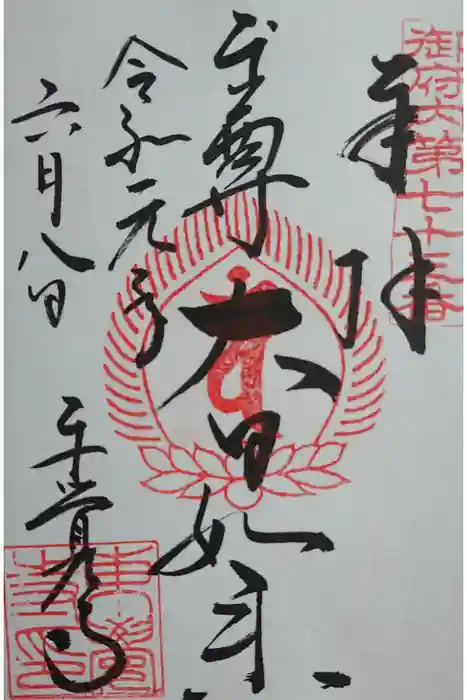 御府内第七十三番
奉拝
本尊 大日如来
令和元年
六月八日
東覚寺